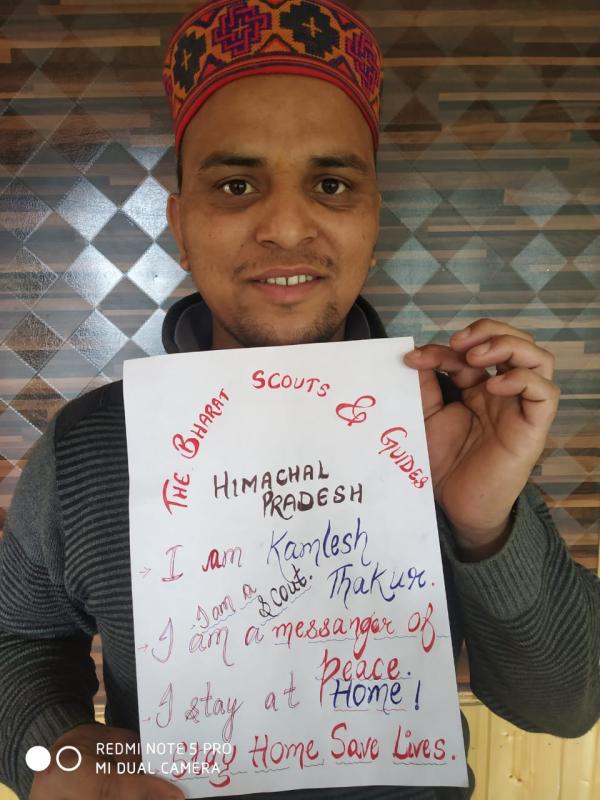 THE BHARAT SCOUTS & GUIDES
HIMACHAL
PRADESH
I am Kamlesh
Thakur.
I am a scout.
I am a messanger of
peace.
I stay at Home!
Stay Home Save Lives.
REDMI NOTE 5 PRO
MI DUAL CAMERA